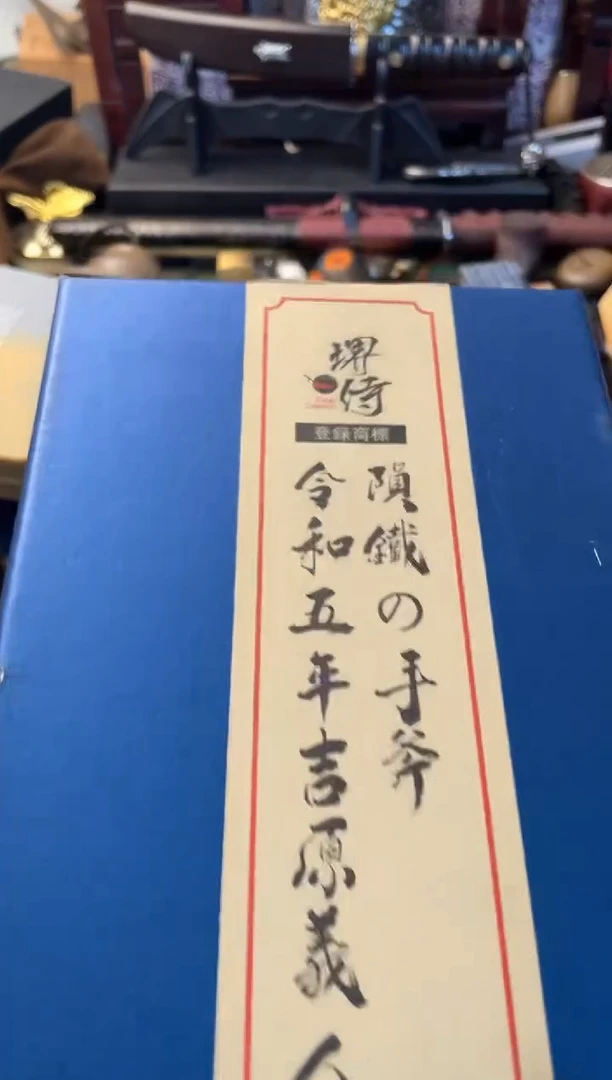 堺侍
登録商標
隕鐵の手斧
令和五年吉原義